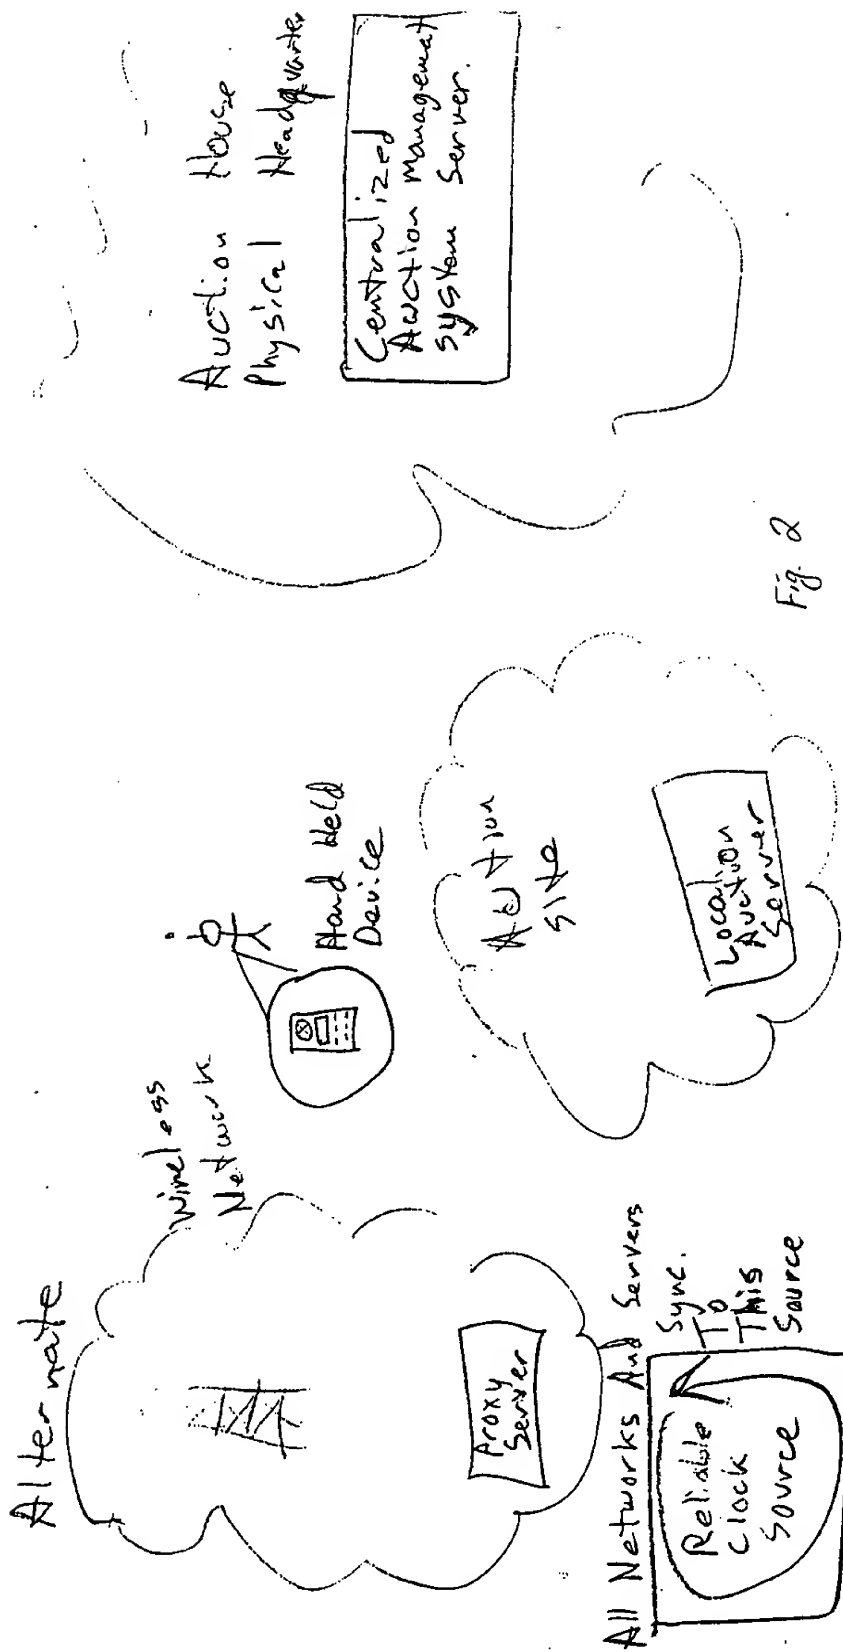 Alternate
Wireless
Network
Proxy
Server
All Networks And Servers
Sync.
To
This
Source
Reliable
Clock
Source
Hand Held
Device
Auction
Site
Location
Auction
Server
Auction House
Physical Headquarter
Centralized
Auction Management
System Server.
Fig. 2